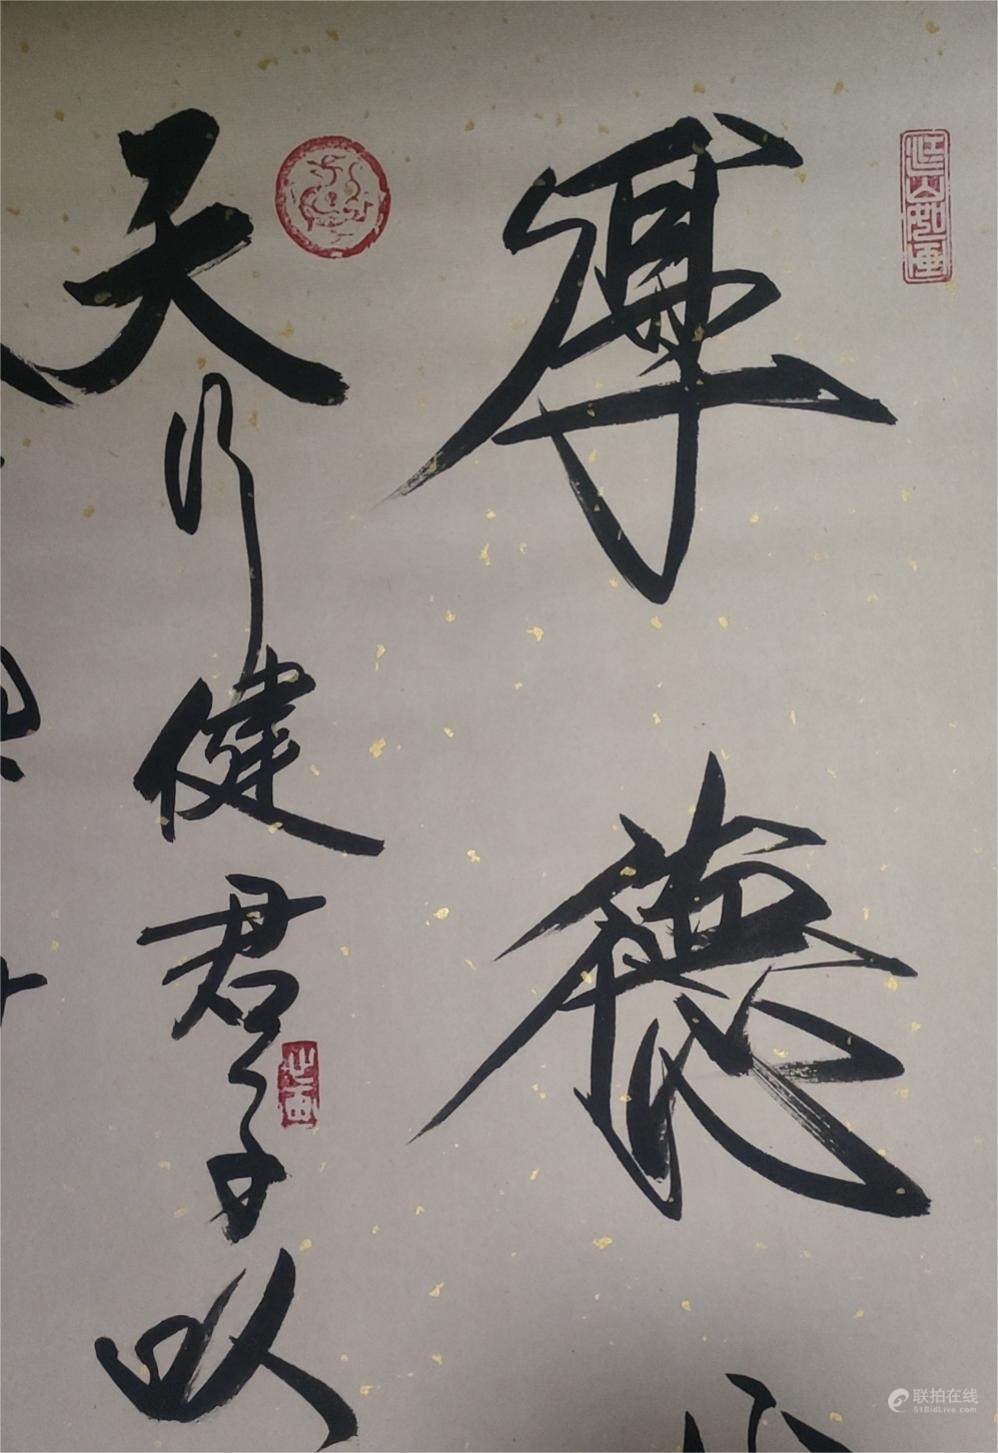 厚德
天行健君子以
联拍在线
51BidLive.com